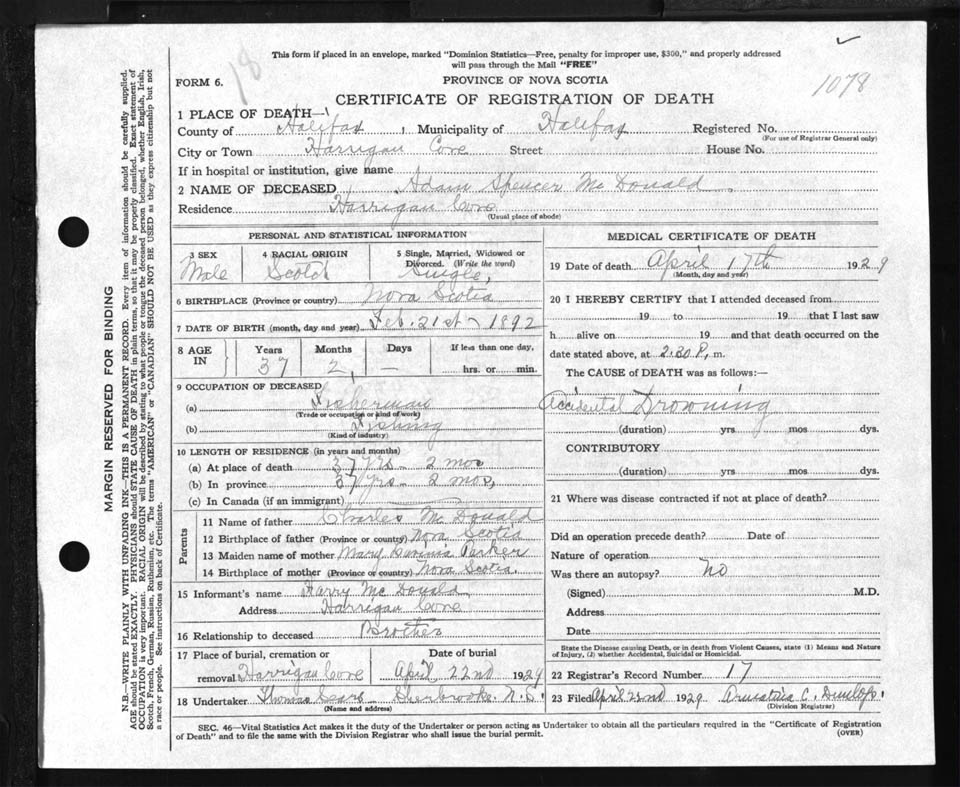 This form if placed in an envelope, marked "Dominion Statistics—Free, penalty for improper use, $300," and properly addressed
will pass through the Mail "FREE"
18
FORM 6.
PROVINCE OF NOVA SCOTIA
1078
CERTIFICATE OF REGISTRATION OF DEATH
1 PLACE OF DEATH—
County of Halifax, Municipality of Halifax Registered No.
(For use of Registrar General only)
City or Town Harrigan Cove Street House No.
If in hospital or institution, give name
2 NAME OF DECEASED Adam Spencer McDonald
Residence Harrigan Cove
(Usual place of abode)
PERSONAL AND STATISTICAL INFORMATION
3 SEX 4 RACIAL ORIGIN 5 Single, Married, Widowed or
Divorced. (Write the word)
Male Scotch Single
6 BIRTHPLACE (Province or country) Nova Scotia
7 DATE OF BIRTH (month, day and year) Feb. 21st 1892
8 AGE IN Years Months Days If less than one day,
37 2 — hrs. or min.
9 OCCUPATION OF DECEASED
(a) Fisherman
(Trade or occupation or kind of work)
(b) Fishing
(Kind of industry)
10 LENGTH OF RESIDENCE (in years and months)
(a) At place of death 37 yrs - 2 mos
(b) In province 37 yrs - 2 mos,
(c) In Canada (if an immigrant)
Parents
11 Name of father Charles McDonald
12 Birthplace of father (Province or country) Nova Scotia
13 Maiden name of mother Mary Parker
14 Birthplace of mother (Province or country) Nova Scotia
15 Informant's name Harry McDonald
Address Harrigan Cove
16 Relationship to deceased Brother
17 Place of burial, cremation or Date of burial
removal Harrigan Cove April 22nd 1929
18 Undertaker Thomas Sears Sherbrooke N.S.
(Name and address)
MEDICAL CERTIFICATE OF DEATH
19 Date of death April 17th 1929
(Month, day and year)
20 I HEREBY CERTIFY that I attended deceased from
19 to 19 that I last saw
h alive on 19 and that death occurred on the
date stated above, at 2.30 P. m.
The CAUSE of DEATH was as follows:—
Accidental Drowning
(duration) yrs mos dys.
CONTRIBUTORY
(duration) yrs. mos. dys.
21 Where was disease contracted if not at place of death?
Did an operation precede death? Date of
Nature of operation
Was there an autopsy? No
(Signed) M.D.
Address
Date
State the Disease causing Death, or in death from Violent Causes, state (1) Means and Nature
of Injury, (2) whether Accidental, Suicidal or Homicidal.
22 Registrar's Record Number 17
23 Filed April 22nd 1929 C. Dunlop
(Division Registrar)
SEC. 46—Vital Statistics Act makes it the duty of the Undertaker or person acting as Undertaker to obtain all the particulars required in the "Certificate of Registration
of Death" and to file the same with the Division Registrar who shall issue the burial permit.
(OVER)
MARGIN RESERVED FOR BINDING
N.B.—WRITE PLAINLY WITH UNFADING INK—THIS IS A PERMANENT RECORD. Every item of information should be carefully supplied.
AGE should be stated EXACTLY. PHYSICIANS should STATE CAUSE OF DEATH in plain terms, so that it may be properly classified. Exact statement of
OCCUPATION is very important. RACIAL ORIGIN will be described by stating to what people or tongue the deceased person belonged, whether English, Irish,
Scotch, French, German, Russian, Ruthenian, etc. The terms "AMERICAN" or "CANADIAN" SHOULD NOT BE USED as they express citizenship but not
a race or people. See instructions on back of Certificate.